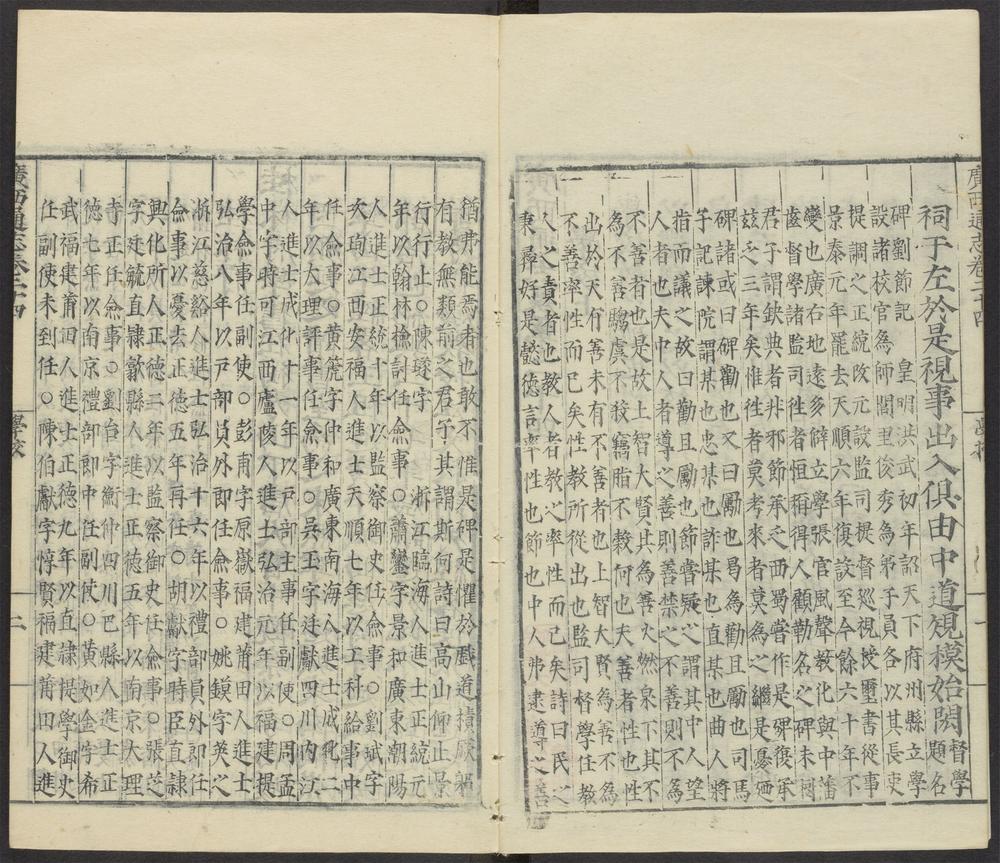 祠于左於是視事出入俱由中道䂓模始閎督學題名
碑劉節記　皇明洪武初年詔天下府州縣立學
設諸校官為師閭里俊秀為弟子員各以其長吏
提調之正統改元設監司提督廵視授璽書從事
景泰元年罷去天順六年復設至今餘六十年不
變也廣右地遠多僻立學張官風聲教化與中藩
齒督學諸監司徃者恒稱得人顧勒名之碑未樹
君子謂鈌典者非邪節莾之西蜀嘗作是碑復承
玆乏三年矣惟徃者莫考來者莫為之繼是憂廼
碑諸或曰碑勸也又曰勵也曷為勸且勵也司馬
子記諫院謂某也忠某也詐某也直某也曲人將
指而議之故曰勸且勵也節嘗疑之謂其中人望
人者也夫中人者導之善則善禁之不善則不為
不善者也是故上智大賢其為善火燃泉下其不
為不善騶虞不殺竊脂不榖何也夫善者性也性
出於天何善未有不善者也上智大賢為善不為
不善率性而已矣性教所從出也監司督學任教
人之責者也教人者教之率性而已矣詩曰民之
秉彛好是懿德言率性也節也中人弗逮導之善
猶弗能焉者也敢不惟是碑是懼於戲道積厥躬
有教無類前之君子其謂斯何詩曰高山仰止景
行行止○陳璲字　浙江臨海人進士正統元
年以翰林檢討任僉事○蕭鑾字景和廣東潮陽
人進士正統十年以監察御史任僉事○劉斌字
次珣江西安福人進士天順七年以工科給事中
任僉事○黃篪字仲和廣東南海人進士成化二
年以大理評事任僉事○吳玉字廷獻四川內江
人進士成化十一年以户部主事任副使○周孟
中字時可江西廬陵人進士弘治元年以福建提
學僉事任副使○彭甫字原嶽福建莆田人進士
弘治八年以户部員外郎任僉事○姚鏌字英之
浙江慈谿人進士弘治十六年以禮部員外郎任
僉事以憂去正德五年再任○胡獻字時臣直隷
興化所人正德三年以監察御史任僉事○張芝
字廷毓直隷歙縣人進士正德五年以南京大理
寺正任僉事○劉台字衡仲四川巴縣人進士正
德七年以南京禮部郎中任副使○黃如金字希
武福建莆田人進士正德九年以直隷提學御史
任副使未到任○陳伯獻字惇賢福建莆田人進
廣西通志卷二十四
學校
二